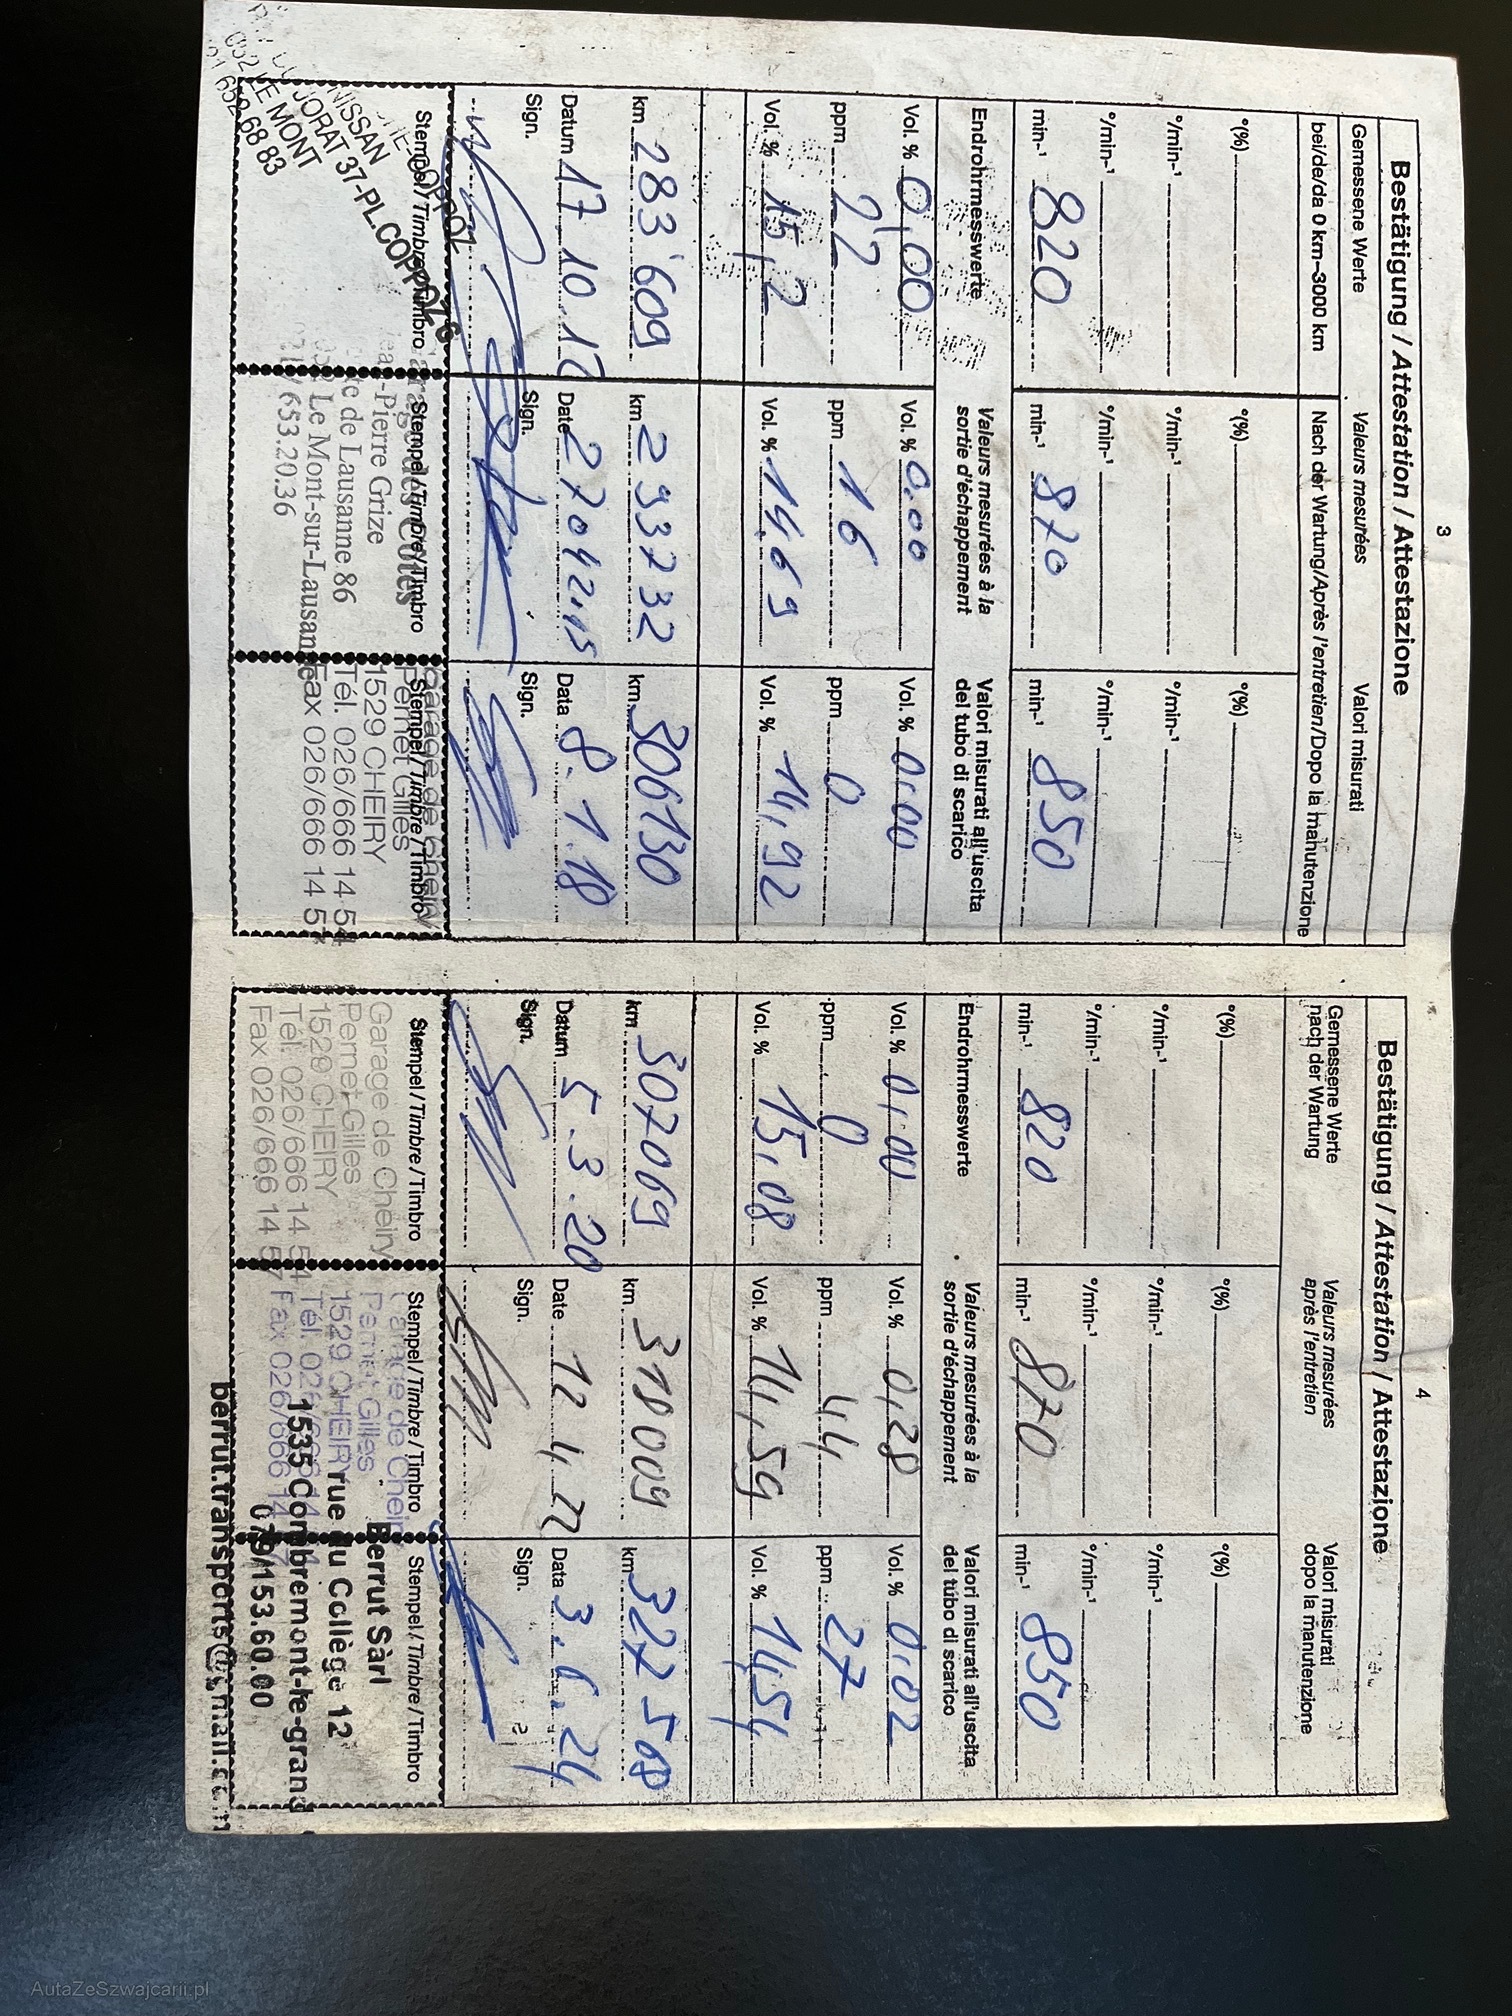 3
Bestätigung / Attestation / Attestazione
Gemessene Werte Valeurs mesurées Valori misurati
bei/de/da 0 km–3000 km Nach der Wartung/Après l'entretien/Dopo la manutenzione
°(%) °(%) °(%)
°/min-¹ °/min-¹ °/min-¹
°/min-¹ °/min-¹ °/min-¹
min-¹ 820 min-¹ 870 min-¹ 850
Endrohrmesswerte Valeurs mesurées à la Valori misurati all'uscita
sortie d'échappement del tubo di scarico
Vol. % 0,00 Vol. % 0.00 Vol. % 0,00
ppm 22 ppm 16 ppm 0
Vol. % 15,2 Vol. % 14.69 Vol. % 14,92
km 283'609 km 293732 km 306130
Datum 17.10.12 Date 27042015 Data 8.1.18
Sign. Sign. Sign.
Stempel/Timbre/Timbro Stempel/Timbre/Timbro Stempel/Timbre/Timbro
NISSAN
JORAT 37-PL.COPPOZ
LE MONT
652 68 83
Garage des Côtes
Jean-Pierre Grize
de Lausanne 86
Le Mont-sur-Lausanne
/653.20.36
Garage de Cheiry
Pernet Gilles
1529 CHEIRY
Tél. 026/666 14 54
Fax 026/666 14 57
4
Bestätigung / Attestation / Attestazione
Gemessene Werte Valeurs mesurées Valori misurati
nach der Wartung après l'entretien dopo la manutenzione
°(%) °(%) °(%)
°/min-¹ °/min-¹ °/min-¹
°/min-¹ °/min-¹ °/min-¹
min-¹ 820 min-¹ 870 min-¹ 850
Endrohrmesswerte Valeurs mesurées à la Valori misurati all'uscita
sortie d'échappement del tubo di scarico
Vol. % 0,00 Vol. % 0,28 Vol. % 0.02
ppm 0 ppm 44 ppm 27
Vol. % 15,08 Vol. % 14,59 Vol. % 14,54
km 307069 km 318009 km 322508
Datum 5.3.20 Date 12 4 22 Data 3.6.24
Sign. Sign. Sign.
Stempel/Timbre/Timbro Stempel/Timbre/Timbro Stempel/Timbre/Timbro
Garage de Cheiry
Pernet Gilles
1529 CHEIRY
Tél. 026/666 14 54
Fax 026/666 14 57
Garage de Cheiry
Pernet Gilles
1529 CHEIRY
Tél. 026/666 14
Fax 026/666 14
Berrut Sàrl
rue du Collège 12
1535 Combremont-le-grand
079/153.60.00
berrut.transports@gmail.com
AutaZeSzwajcarii.pl